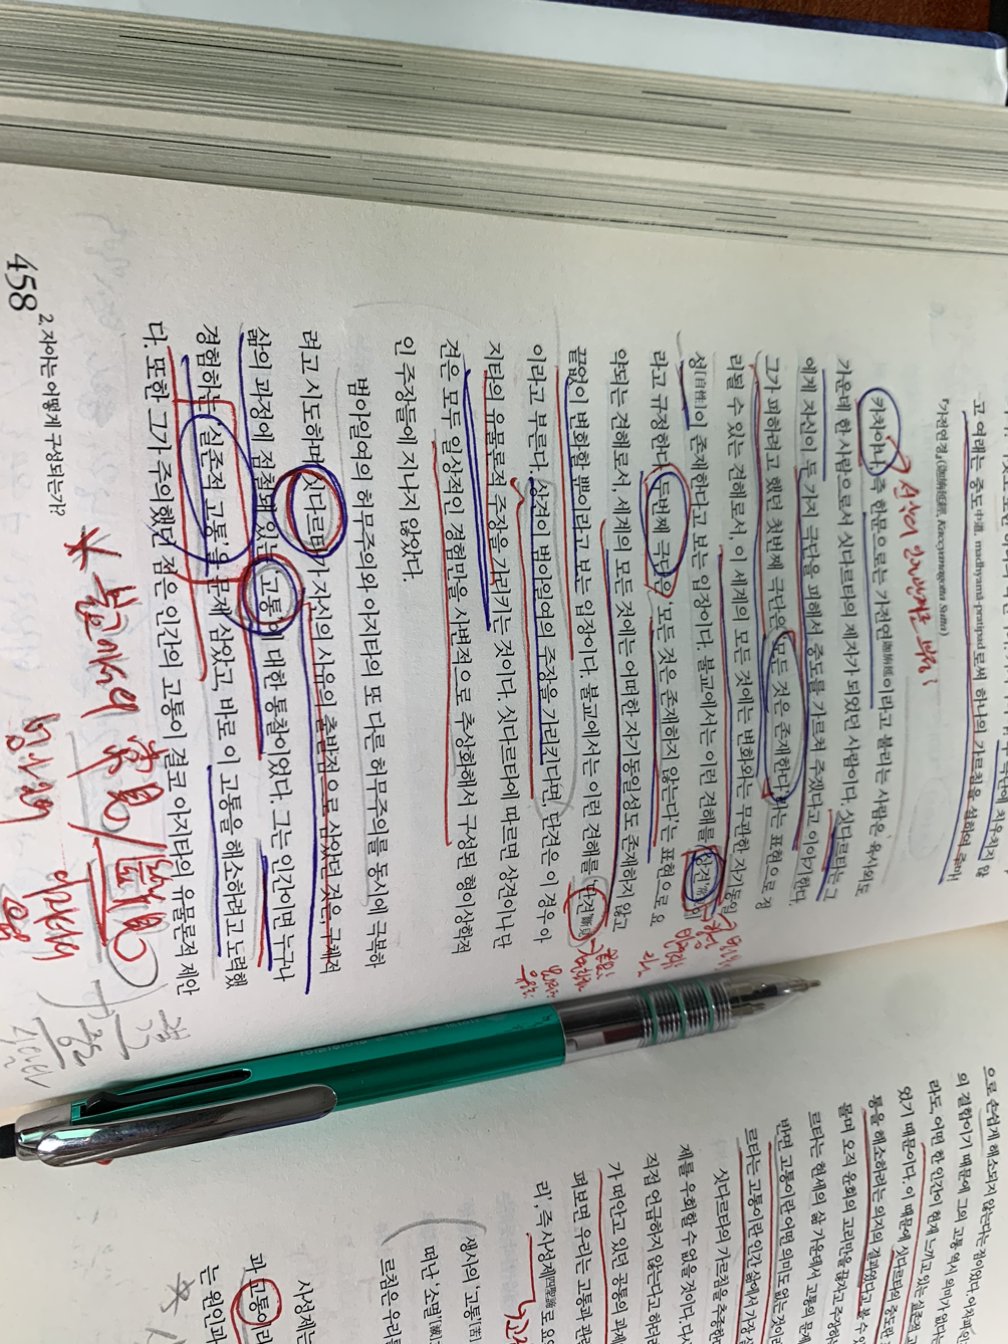 고 여래는 중도中道, madhyamā-pratipad로써 하나의 가르침을 설하여
카차야나, 즉 한문으로는 가전연迦旃延이라고 불리는 사람은 육사외도
가운데 한 사람으로서 싯다르타의 제자가 되었던 사람이다. 싯다르타는 그
에게 자신이 두 가지 극단을 피해서 중도를 가르쳐 주겠다고 이야기한다.
그가 피하려고 했던 첫번째 극단은 '모든 것은 존재한다'라는 표현으로 정
리될 수 있는 견해로서, 이 세계의 모든 것에는 변화와는 무관한 자기동일
성[自性]이 존재한다고 보는 입장이다. 불교에서는 이런 견해를 '상견常見'이
라고 규정한다. 두번째 극단은 '모든 것은 존재하지 않는다'는 표현으로 요
약되는 견해로서, 세계의 모든 것에는 어떠한 자기동일성도 존재하지 않고
끝없이 변화할 뿐이라고 보는 입장이다. 불교에서는 이런 견해를 '단견斷見'
이라고 부른다. 상견이 범아일여의 주장을 가리킨다면, 단견은 이 경우 아
지타의 유물론적 주장을 가리키는 것이다. 싯다르타에 따르면 상견이나 단
견은 모두 일상적인 경험만을 사변적으로 추상화해서 구성된 형이상학적
인 주장들에 지나지 않았다.
범아일여의 허무주의와 아지타의 또 다른 허무주의를 동시에 극복하
려고 시도하며 싯다르타가 자신의 사유의 출발점으로 삼았던 것은 구체적
삶의 과정에 점철돼 있는 '고통'에 대한 통찰이었다. 그는 인간이면 누구나
경험하는 '실존적 고통'을 문제 삼았고, 바로 이 고통을 해소하려고 노력했
다. 또한 그가 주의했던 점은 인간의 고통이 결코 아지타의 유물론적 제안
* 불교에서의 常見/斷見
범아일여
아지타
458
2. 자아는 어떻게 구성되는가?
으로 손쉽게 해소되지 않는다는 점이었다.
의 결합이기 때문에 그의 고통 역시 의미가 없다
라도, 어떤 한 인간이 현재 느끼고 있는 실존적
있기 때문이다. 이 때문에 싯다르타의 중도란
통을 해소하려는 의지의 결과였다고 볼 수
몰며 오직 윤회의 고리만을 끊자고 주장하
르타는 현세의 삶 가운데서 고통의 문제
반면 고통이란 어떤 의미도 없는 것이라
르타는 고통이란 인간 삶에서 가장
싯다르타의 가르침을 추종한
제를 우회할 수 없을 것이다. 다시
직접 언급하지 않는다고 하더라
가 떠안고 있던 공통의 과제
펴보면 우리는 고통과 관련
리', 즉 사성제四聖諦로 요
생사의 '고통[苦]
떠난 '소멸[滅]
르침은 우리를
사성제는
과 고통이라
는 원인과